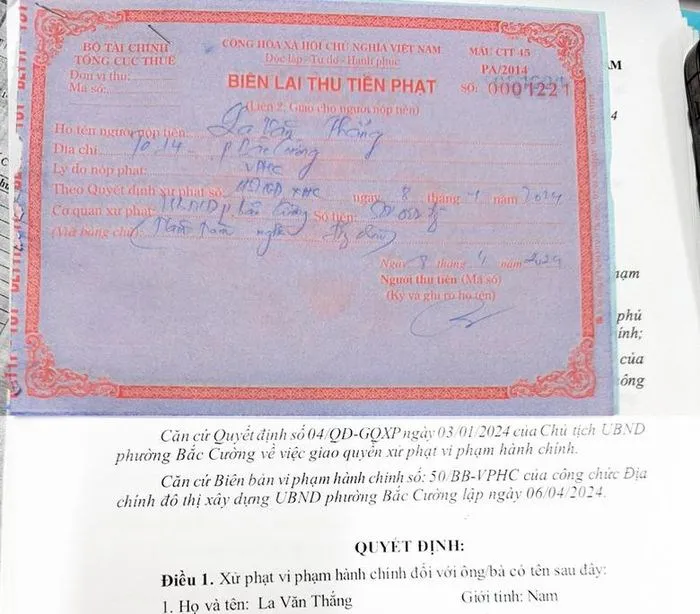 BỘ TÀI CHÍNH
TỔNG CỤC THUẾ
Đơn vị thu:
Mã số:
CỘNG HÒA XÃ HỘI CHỦ NGHĨA VIỆT NAM
Độc lập - Tự do - Hạnh phúc
MẪU CTT 45
PA/2014
BIÊN LAI THU TIỀN PHẠT
SỐ: 0001221
(Liên 2: Giao cho người nộp tiền)
Họ tên người nộp tiền: La Văn Thắng
Địa chỉ: Tổ 14 p Bắc Cường
Lý do nộp phạt: VPHC
Theo Quyết định xử phạt số: ngày 8 tháng 4 năm 2024
Cơ quan xử phạt: UBND p Bắc Cường Số tiền:
(Viết bằng chữ) Năm trăm nghìn
Ngày 8 tháng 4 năm 2024
Người thu tiền (Mã số)
(Ký và ghi rõ họ tên)
AM
4
phạm
phủ
ính;
của
ông
Căn cứ Quyết định số 04/QĐ-GQXP ngày 03/01/2024 của Chủ tịch UBND
phường Bắc Cường về việc giao quyền xử phạt vi phạm hành chính.
Căn cứ Biên bản vi phạm hành chính số: 50/BB-VPHC của công chức Địa
chính đô thị xây dựng UBND phường Bắc Cường lập ngày 06/04/2024.
QUYẾT ĐỊNH:
Điều 1. Xử phạt vi phạm hành chính đối với ông/bà có tên sau đây:
1. Họ và tên: La Văn Thắng Giới tính: Nam